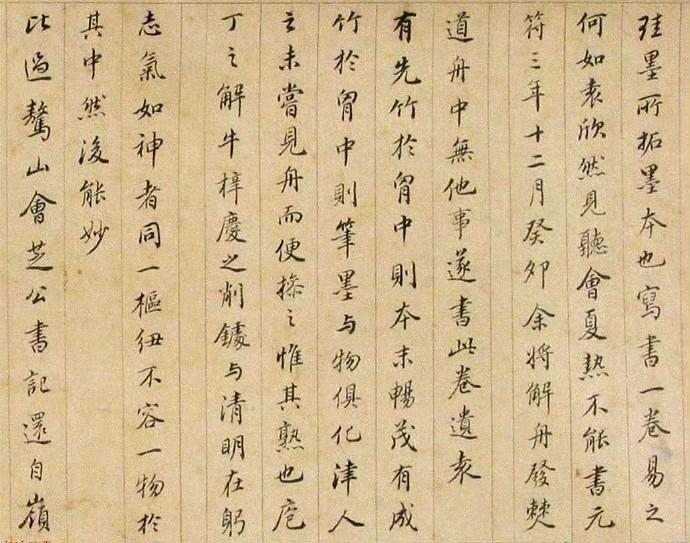 珪墨所拓墨本也寫書一卷易之
何如袁欣然見聽會夏熱不能書元
符三年十二月癸卯余將解舟發僰
道舟中無他事遂書此卷遺袁
有先竹於胷中則本末暢茂有成
竹於胷中則筆墨与物俱化津人
之未嘗見舟而便操之惟其熟也庖
丁之解牛梓慶之削鐻与清明在躬
志氣如神者同一樞紐不容一物於
其中然後能妙
比過鰲山會芝公書記還自嶺